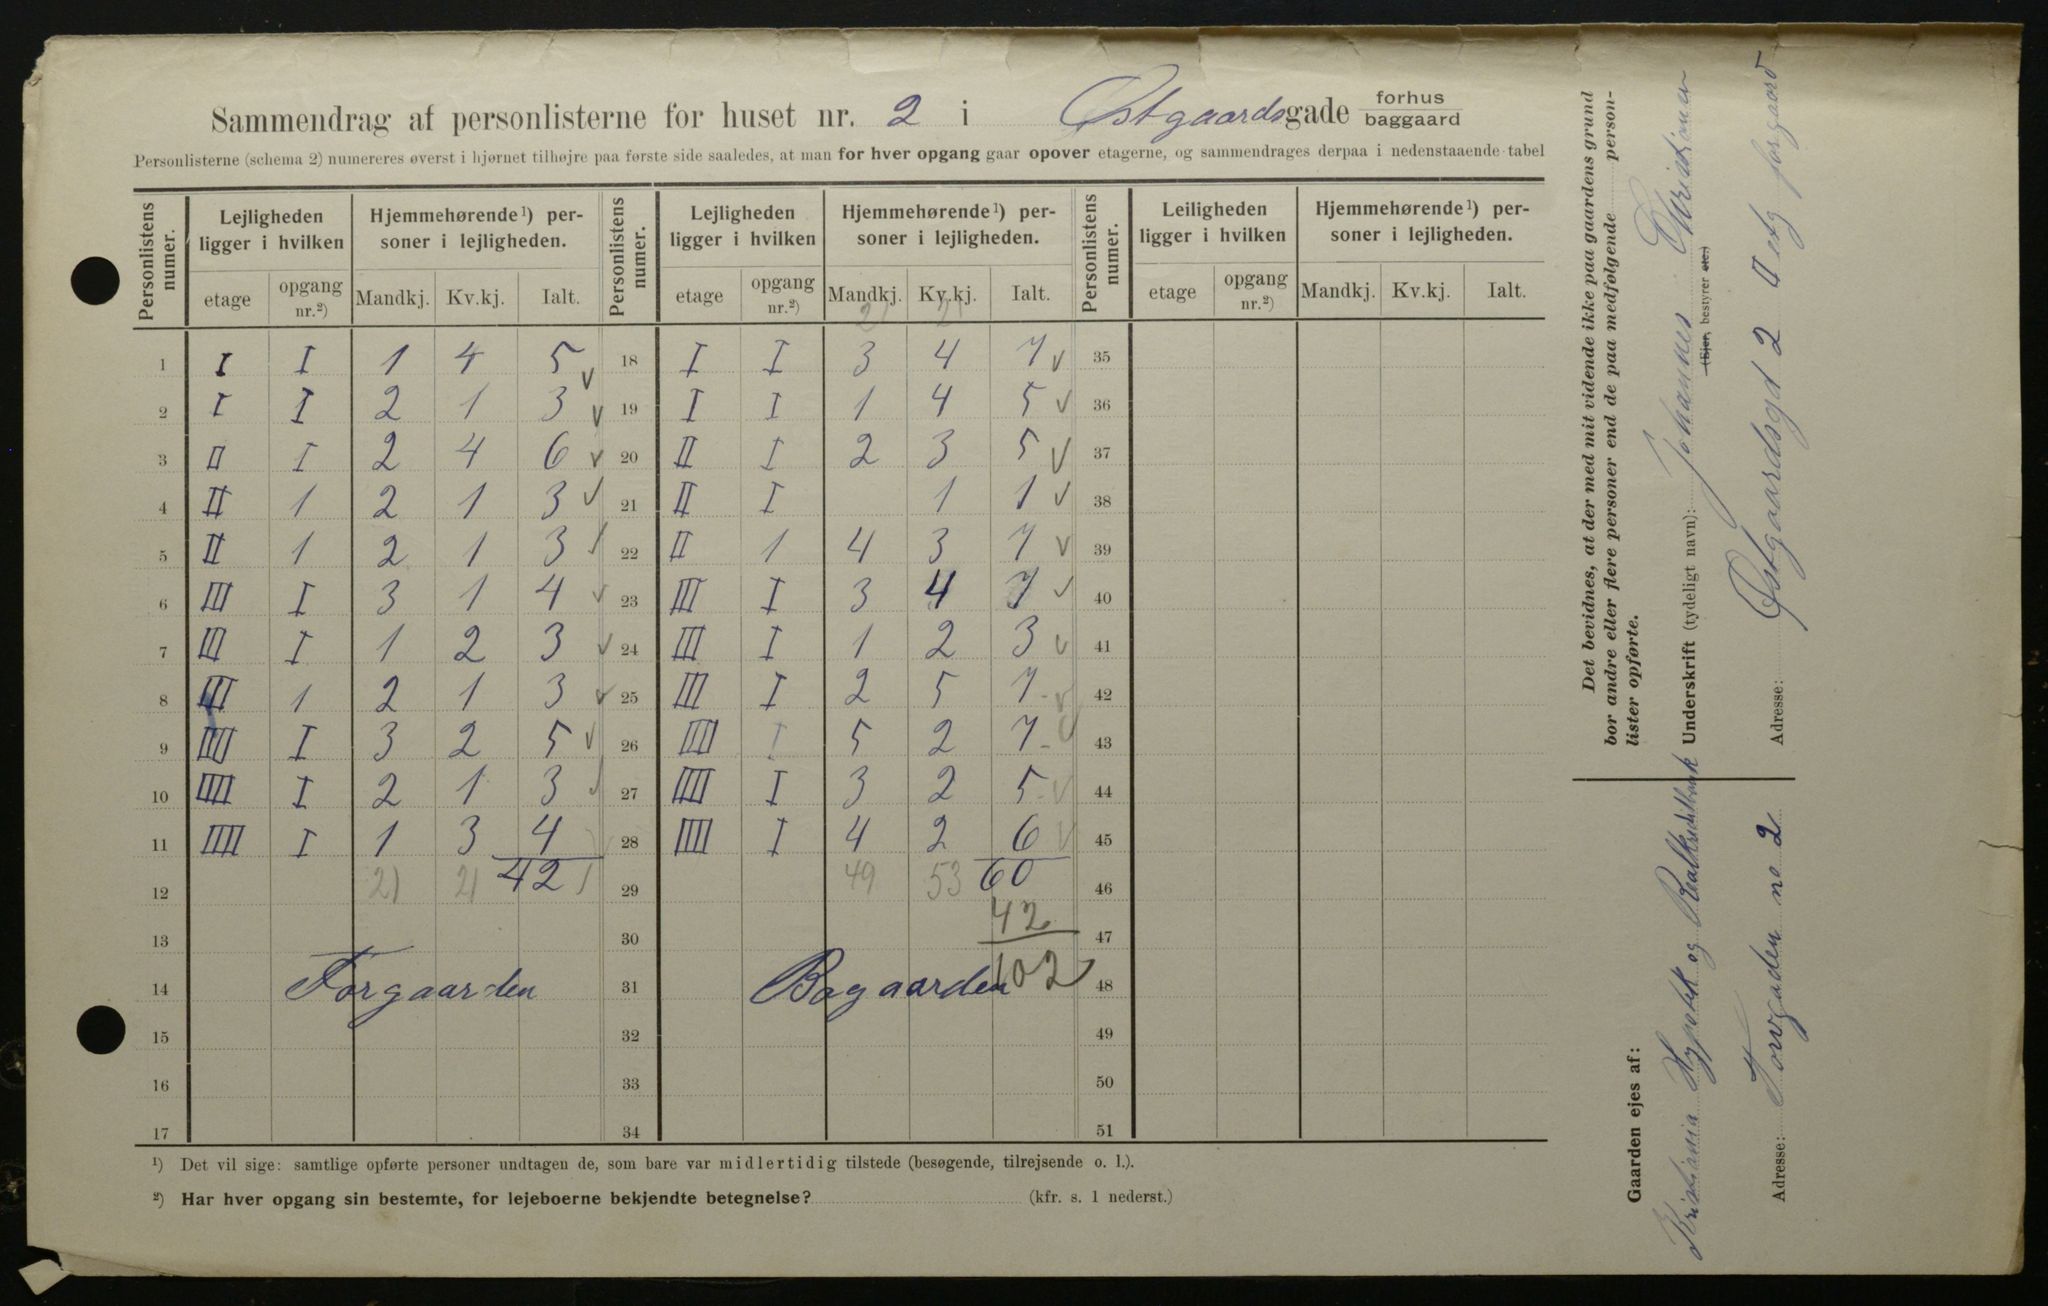 Sammendrag af personlisterne for huset nr. 2 i Østgaardsgade forhus baggaard
Personlisterne (schema 2) numereres øverst i hjørnet tilhøjre paa første side saaledes, at man for hver opgang gaar opover etagerne, og sammendrages derpaa i nedenstaaende tabel
Personlistens numer. Lejligheden ligger i hvilken Hjemmehørende ¹) personer i lejligheden. Personlistens numer. Lejligheden ligger i hvilken Hjemmehørende ¹) personer i lejligheden. Personlistens numer. Leiligheden ligger i hvilken Hjemmehørende ¹) personer i lejligheden.
etage opgang nr.²) Mandkj. Kv.kj. Ialt. etage opgang nr.²) Mandkj. Kv.kj. Ialt. etage opgang nr.²) Mandkj. Kv.kj. Ialt.
21 21
1 I I 1 4 5 v 18 I I 3 4 7 v 35
2 I I 2 1 3 v 19 I I 1 4 5 v 36
3 II I 2 4 6 v 20 II I 2 3 5 v 37
4 II 1 2 1 3 v 21 II I 1 1 v 38
5 II 1 2 1 3 v 22 II 1 4 3 7 v 39
6 III I 3 1 4 v 23 III I 3 4 7 v 40
7 III I 1 2 3 v 24 III I 1 2 3 v 41
8 III 1 2 1 3 v 25 III I 2 5 7 v 42
9 IIII I 3 2 5 v 26 IIII I 5 2 7 v 43
10 IIII I 2 1 3 v 27 IIII I 3 2 5 v 44
11 IIII I 1 3 4 v 28 IIII I 4 2 6 v 45
12 21 21 42 29 49 53 60 46
13 30 42 47
14 Forgaarden 31 Bagaarden 102 48
15 32 49
16 33 50
17 34 51
¹) Det vil sige: samtlige opførte personer undtagen de, som bare var midlertidig tilstede (besøgende, tilrejsende o. l.).
²) Har hver opgang sin bestemte, for lejeboerne bekjendte betegnelse? (kfr. s. 1 nederst.)
Det bevidnes, at der med mit vidende ikke paa gaardens grund
bor andre eller flere personer end de paa medfølgende person-
lister opførte.
Underskrift (tydeligt navn): Johannes Christiansen
(Ejer, bestyrer etc.)
Adresse: Østgaardsgd 2 II etg forgaard
Gaarden ejes af:
Kristiania Hypotek og Realkreditbank
Adresse: Torvgaden no 2